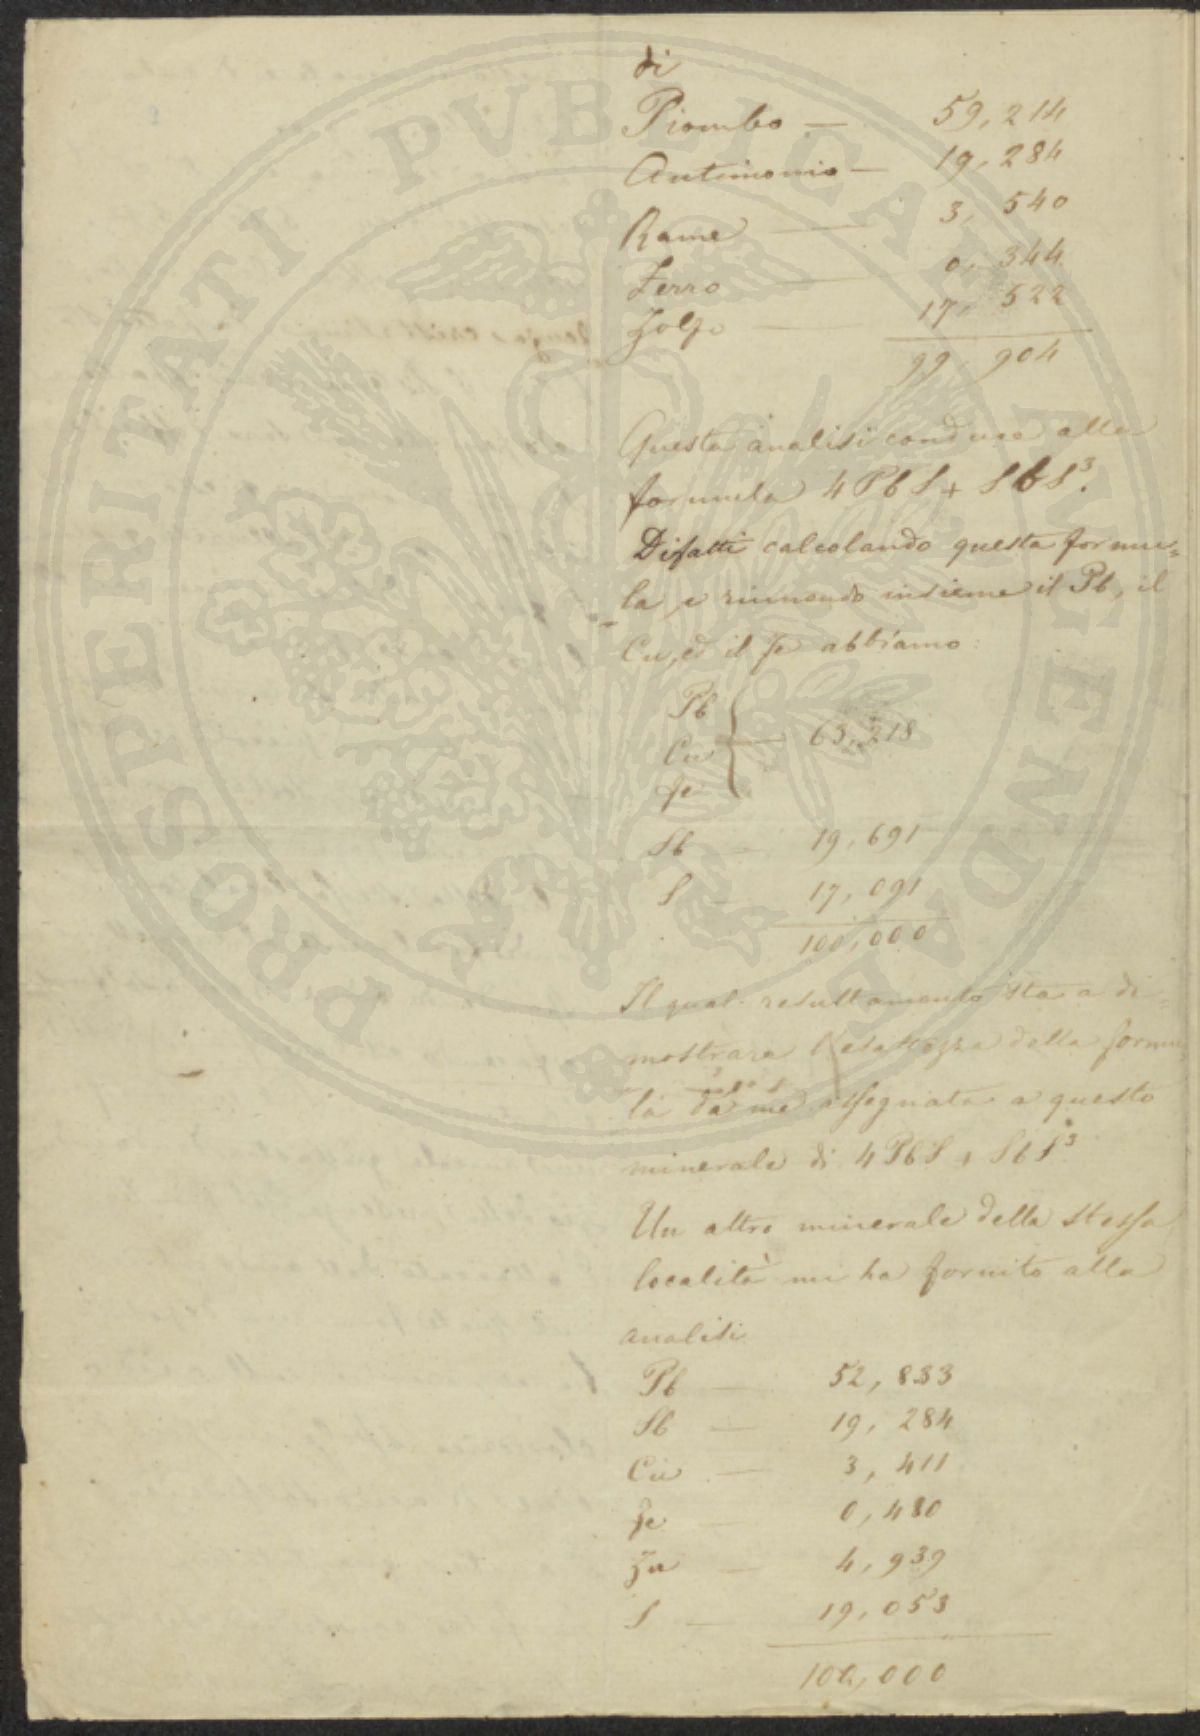 PROSPERITATI PVBLICAE AVGENDAE
di
Piombo — 59,214
Antimonio — 19,284
Rame — 3,540
Ferro — 0,344
Zolfo — 17,522
99,904
Questa analisi conduce alla
formula 4PbS + SbS³.
Difatti calcolando questa formu=
la e riunendo insieme il Pb, il
Cu, ed il Fe abbiamo:
Pb
Cu — 63,218
Fe
Sb — 19,691
S — 17,091
100,000
Il qual resultamento sta a di=
mostrare l'esattezza della formu
la da me assegnata a questo
minerale di 4PbS + SbS³
Un altro minerale della stessa
località mi ha fornito alla
analisi
Pb — 52,833
Sb — 19,284
Cu — 3,411
Fe — 0,480
Zn — 4,939
S — 19,053
100,000